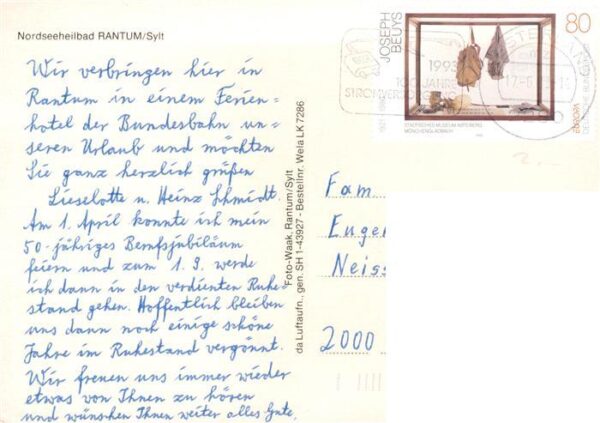 Nordseeheilbad RANTUM/Sylt
Wir verbringen hier in
Rantum in einem Ferien-
hotel der Bundesbahn un-
seren Urlaub und möchten
Sie ganz herzlich grüßen
Lieselotte u. Heinz Schmidt.
Am 1. April konnte ich mein
50-jähriges Berufsjubiläum
feiern und zum 1. 9. werde
ich dann in den verdienten Ruhe-
stand gehen. Hoffentlich bleiben
uns dann noch einige schöne
Jahre im Ruhestand vergönnt.
Wir freuen uns immer wieder
etwas von Ihnen zu hören
und wünschen Ihnen weiter alles Gute.
Foto-Waak, Rantum/Sylt
da Luftaufn., gen. SH 1-43927 - Bestellnr. Wela LK 7286
JOSEPH
BEUYS
80
1993
100 JAHRE
STROMVERSORGUNG
STÄDTISCHES MUSEUM ABTEIBERG
MÖNCHENGLADBACH
DEUTSCHE BUNDESPOST
Fam
Euge
Neiss
2000